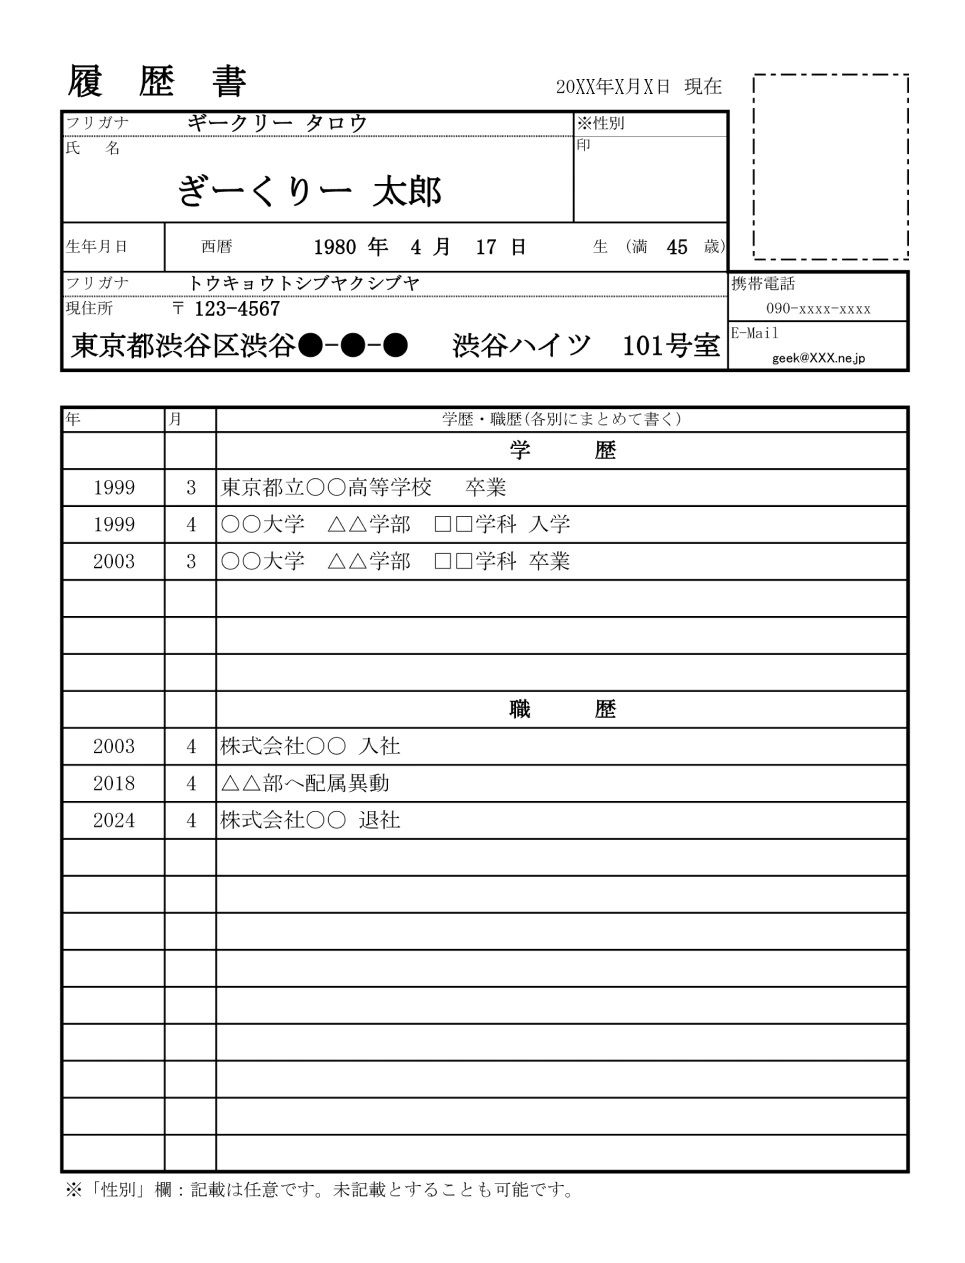 履 歴 書
20XX年X月X日 現在
フリガナ ギークリー タロウ
※性別
氏 名
印
ぎーくりー 太郎
生年月日 西暦 1980 年 4 月 17 日 生 (満 45 歳)
フリガナ トウキョウトシブヤクシブヤ
携帯電話
現住所 〒 123-4567
090-xxxx-xxxx
東京都渋谷区渋谷●-●-● 渋谷ハイツ 101号室
E-Mail
geek@XXX.ne.jp
年 月 学歴・職歴(各別にまとめて書く)
学 歴
1999 3 東京都立〇〇高等学校 卒業
1999 4 〇〇大学 △△学部 □□学科 入学
2003 3 〇〇大学 △△学部 □□学科 卒業
職 歴
2003 4 株式会社〇〇 入社
2018 4 △△部へ配属異動
2024 4 株式会社〇〇 退社
※「性別」欄：記載は任意です。未記載とすることも可能です。